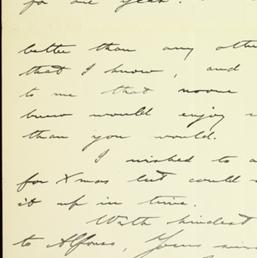 for one year.
better than any othe
that I know, and
to me that noone
knew would enjoy
than you would.
I wished to a
for Xmas but could
it up in time.
With kindest
to Alfonso, Yours sin